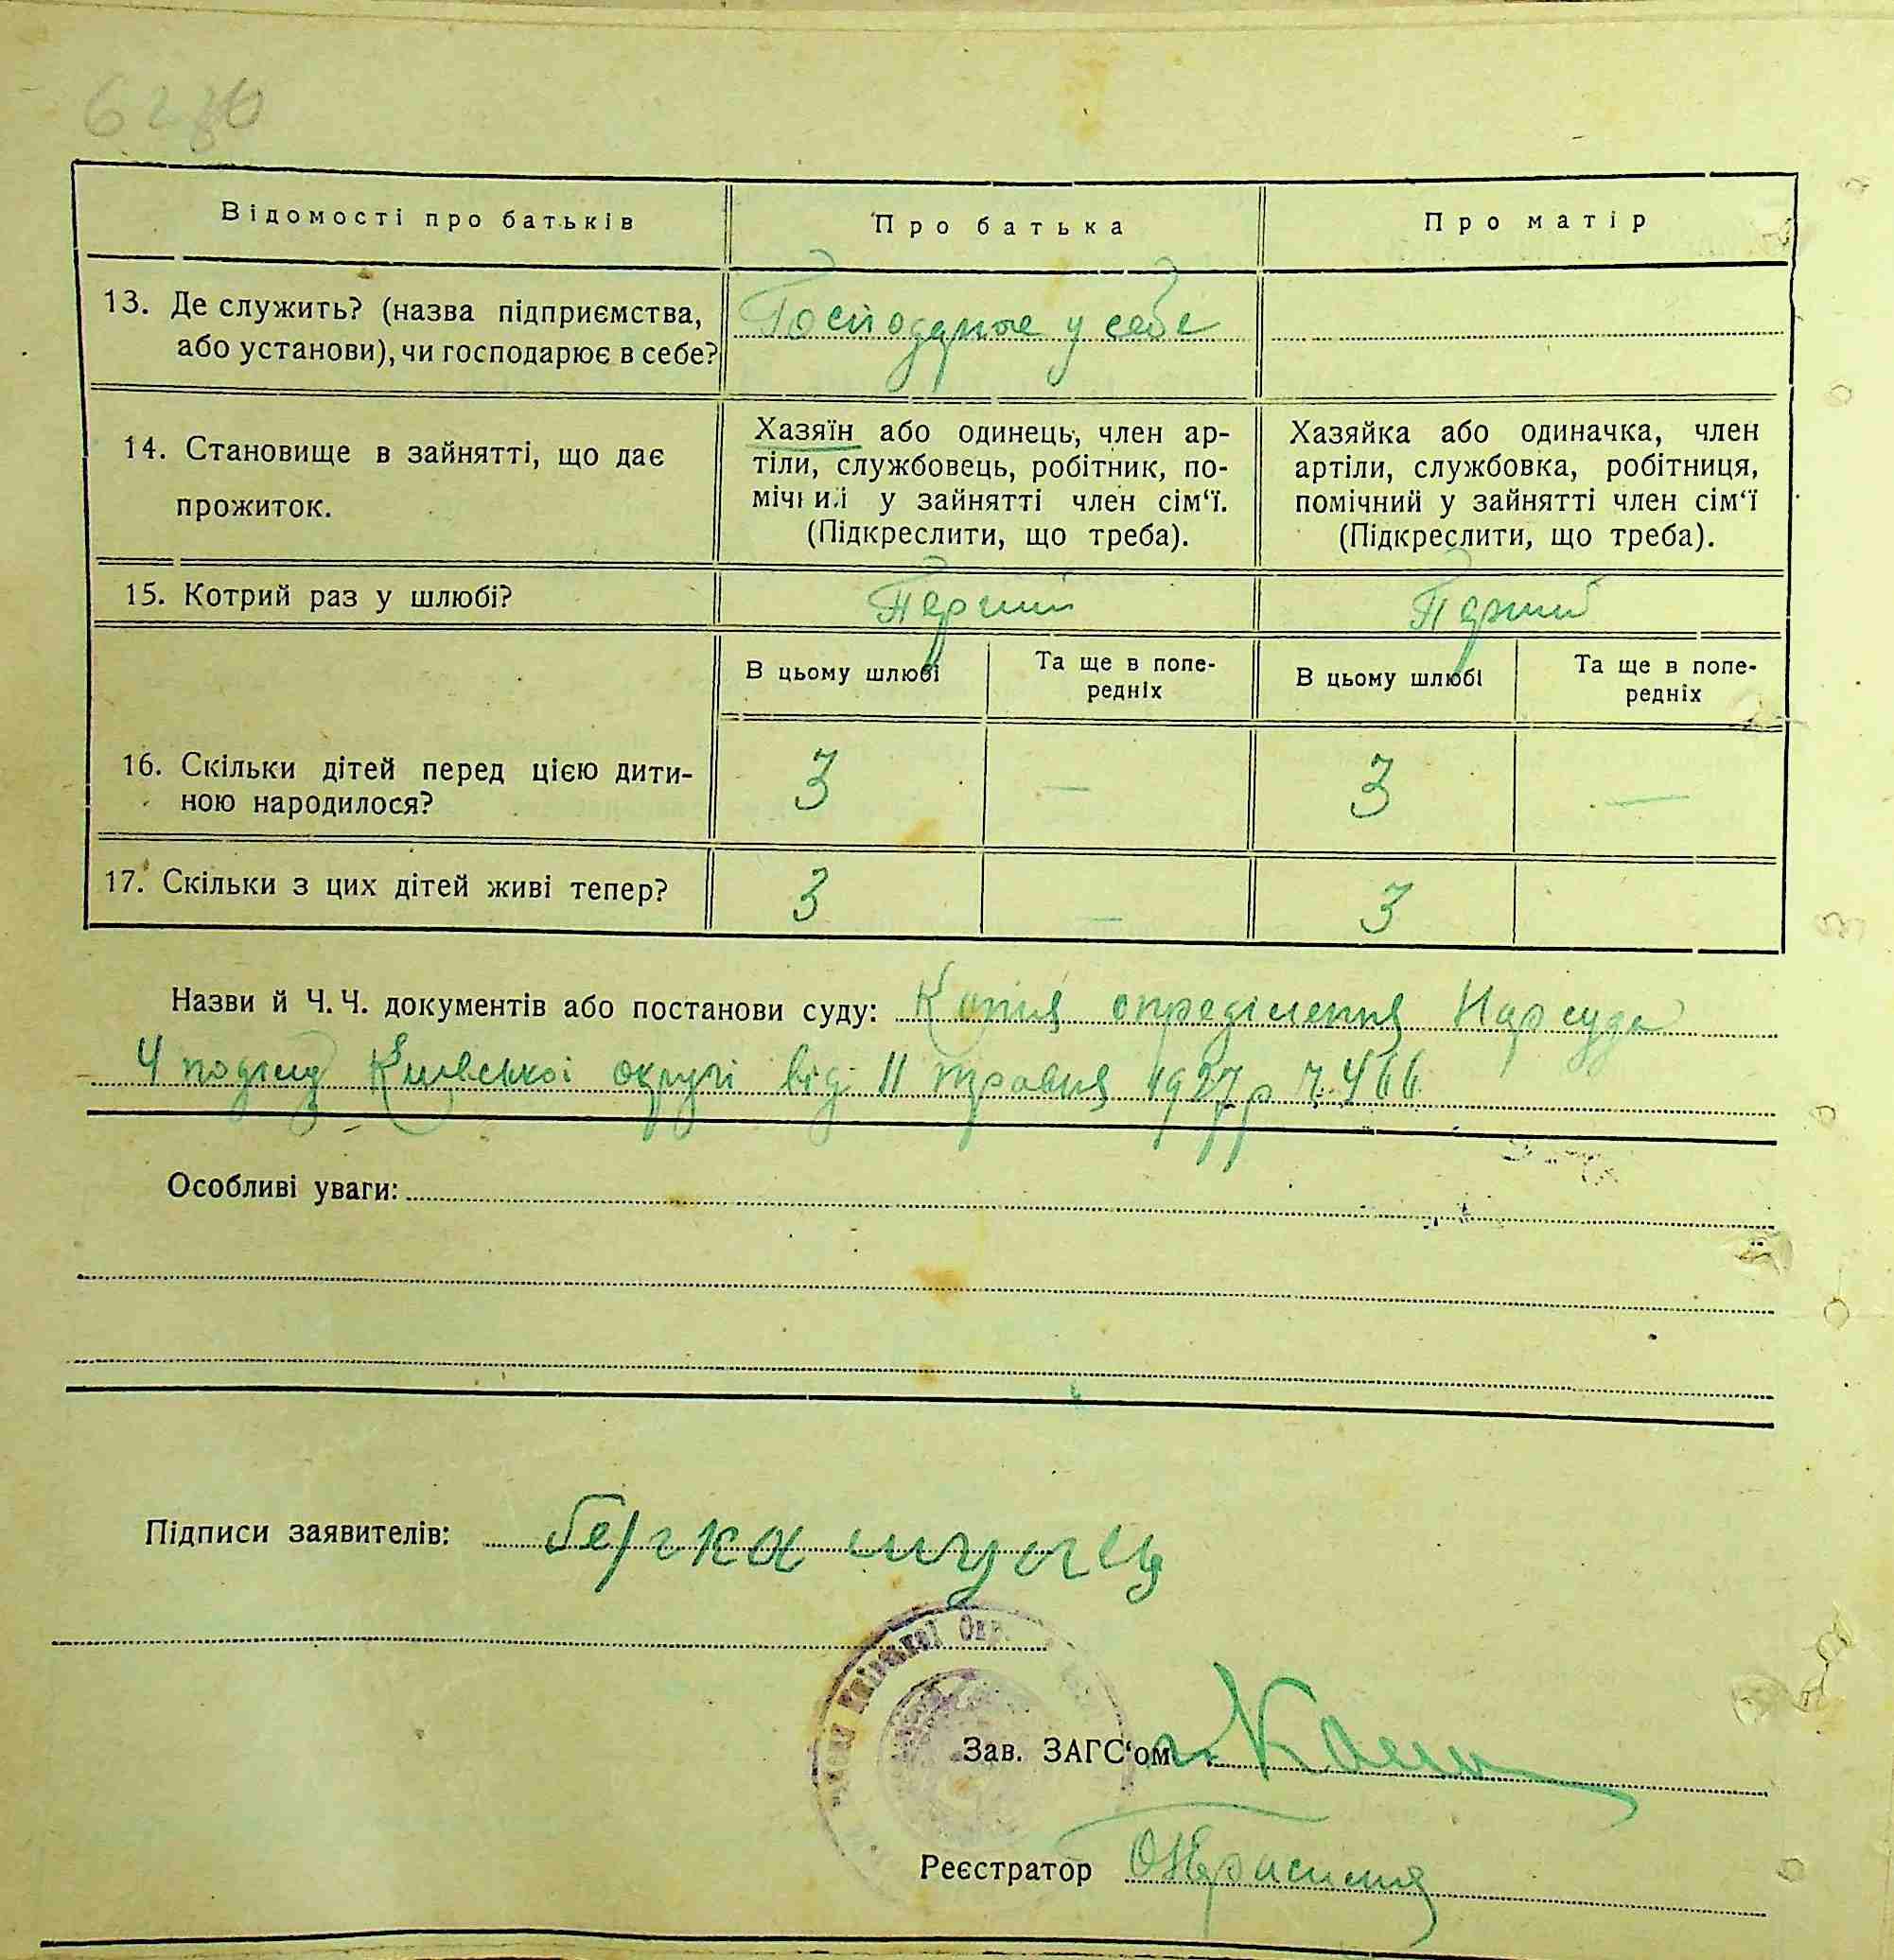 6230
Відомості про батьків
Про батька
Про матір
13. Де служить? (назва підприємства,
або установи), чи господарює в себе?
Господарює у себе
14. Становище в зайнятті, що дає
прожиток.
Хазяїн або одинець, член ар-
тіли, службовець, робітник, по-
мічниі у зайнятті член сім‘ї.
(Підкреслити, що треба).
Хазяйка або одиначка, член
артіли, службовка, робітниця,
помічний у зайнятті член сім‘ї
(Підкреслити, що треба).
15. Котрий раз у шлюбі?
Перший
Перший
В цьому шлюбі
Та ще в попе-
редніх
В цьому шлюбі
Та ще в попе-
редніх
16. Скільки дітей перед цією дити-
ною народилося?
3 — 3 —
17. Скільки з цих дітей живі тепер?
3 — 3
Назви й Ч. Ч. документів або постанови суду: Копия определения Нарсуда
4 поділу Київської округи від 11 травня 1927 р Ч. 466
Особливі уваги:
Підписи заявителів: берка
Київської Окр.
Зав. ЗАГС‘ом
Реєстратор